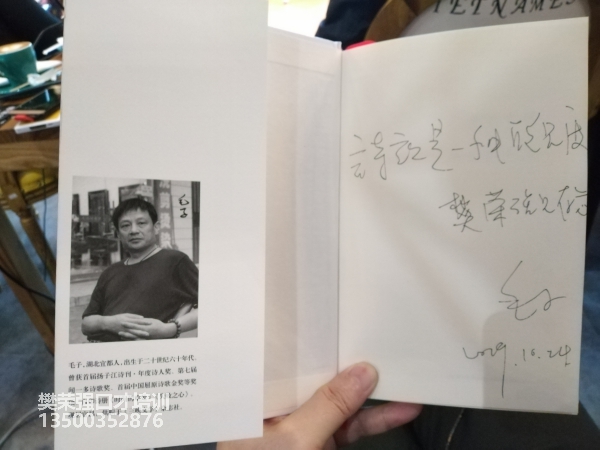 IETNAMES
毛子
毛子,湖北宜都人,出生于二十世纪六十年代,
曾获首届扬子江诗刊·年度诗人奖、第七届
闻一多诗歌奖、首届中国屈原诗歌金奖等奖
之心》、
詩歌是一种能见度
樊荣强兄
毛子
2019.10.24
樊荣强口才培训
13500352876